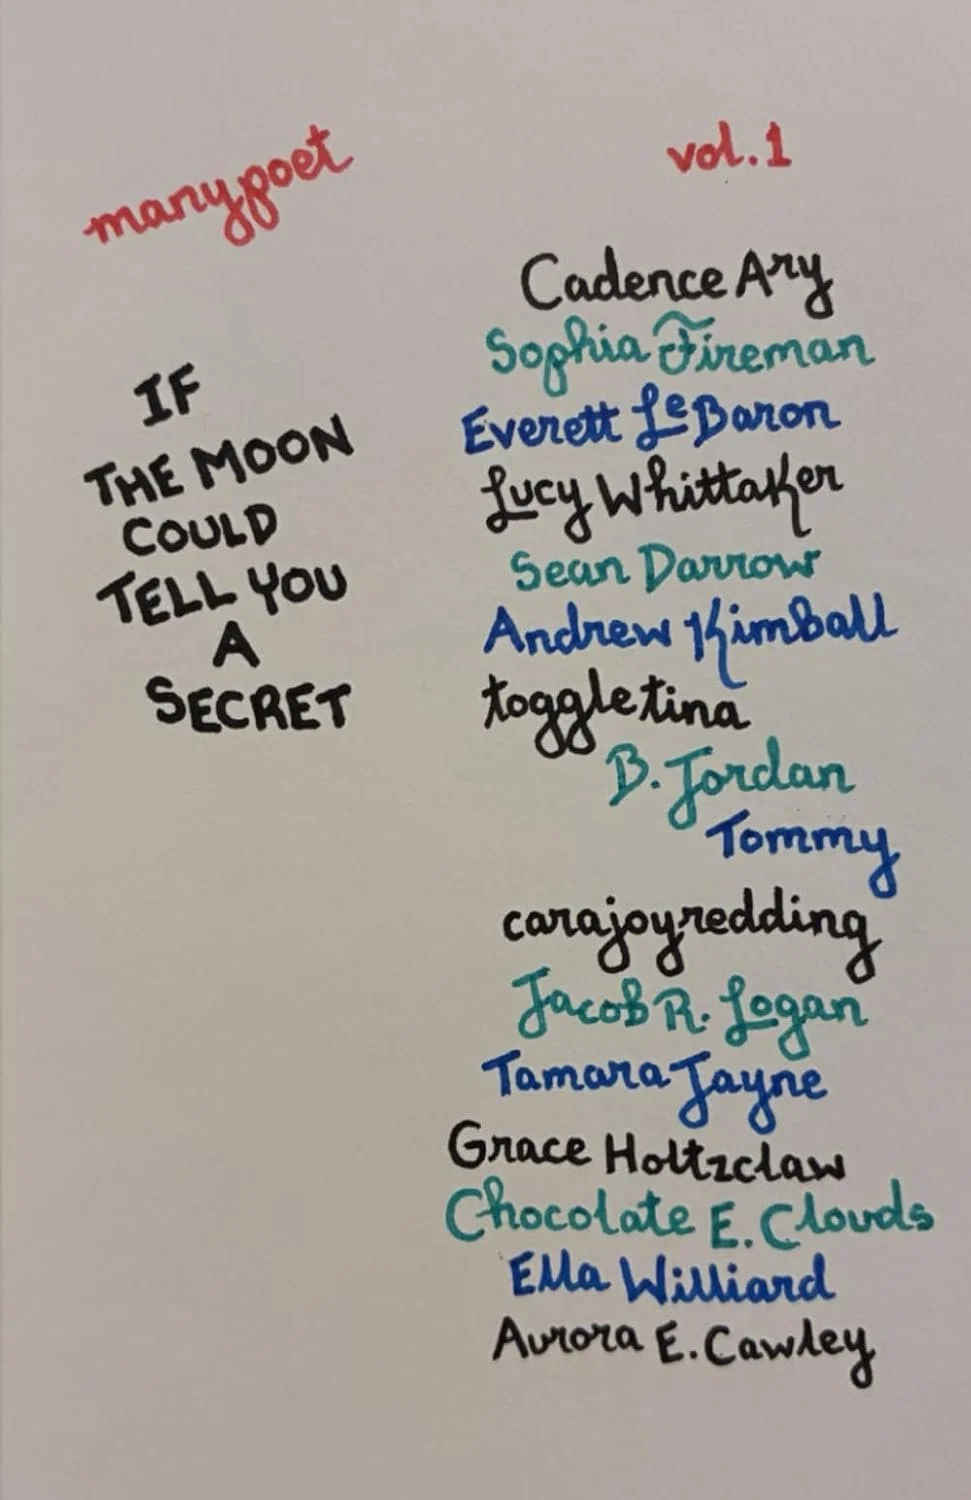 manypoet
vol.1
IF
THE MOON
COULD
TELL YOU
A
SECRET
Cadence Ary
Sophia Fireman
Everett LeBaron
Lucy Whittaker
Sean Darrow
Andrew Kimball
toggletina
B. Jordan
Tommy
carajoyredding
Jacob R. Logan
Tamara Jayne
Grace Holtzclaw
Chocolate E. Clouds
Ella Williard
Aurora E. Cawley